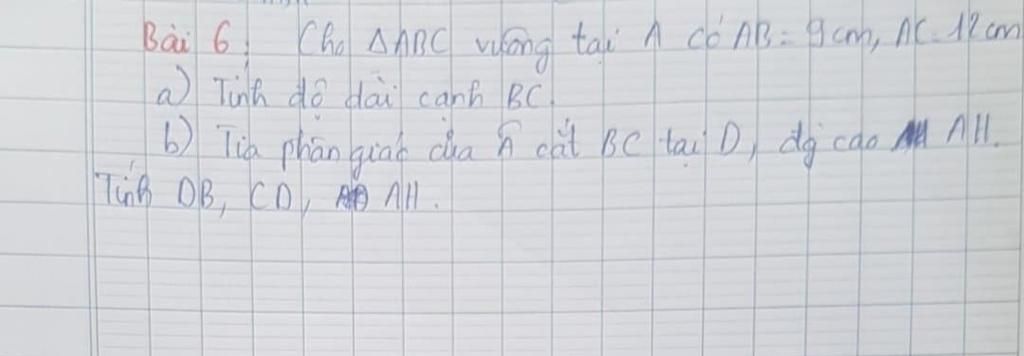 Bài 6: Cho ΔABC vuông tại A có AB = 9cm, AC = 12cm
a) Tính độ dài cạnh BC.
b) Tia phân giác của Â cắt BC tại D, đg cao AH.
Tính DB, CD, AH.